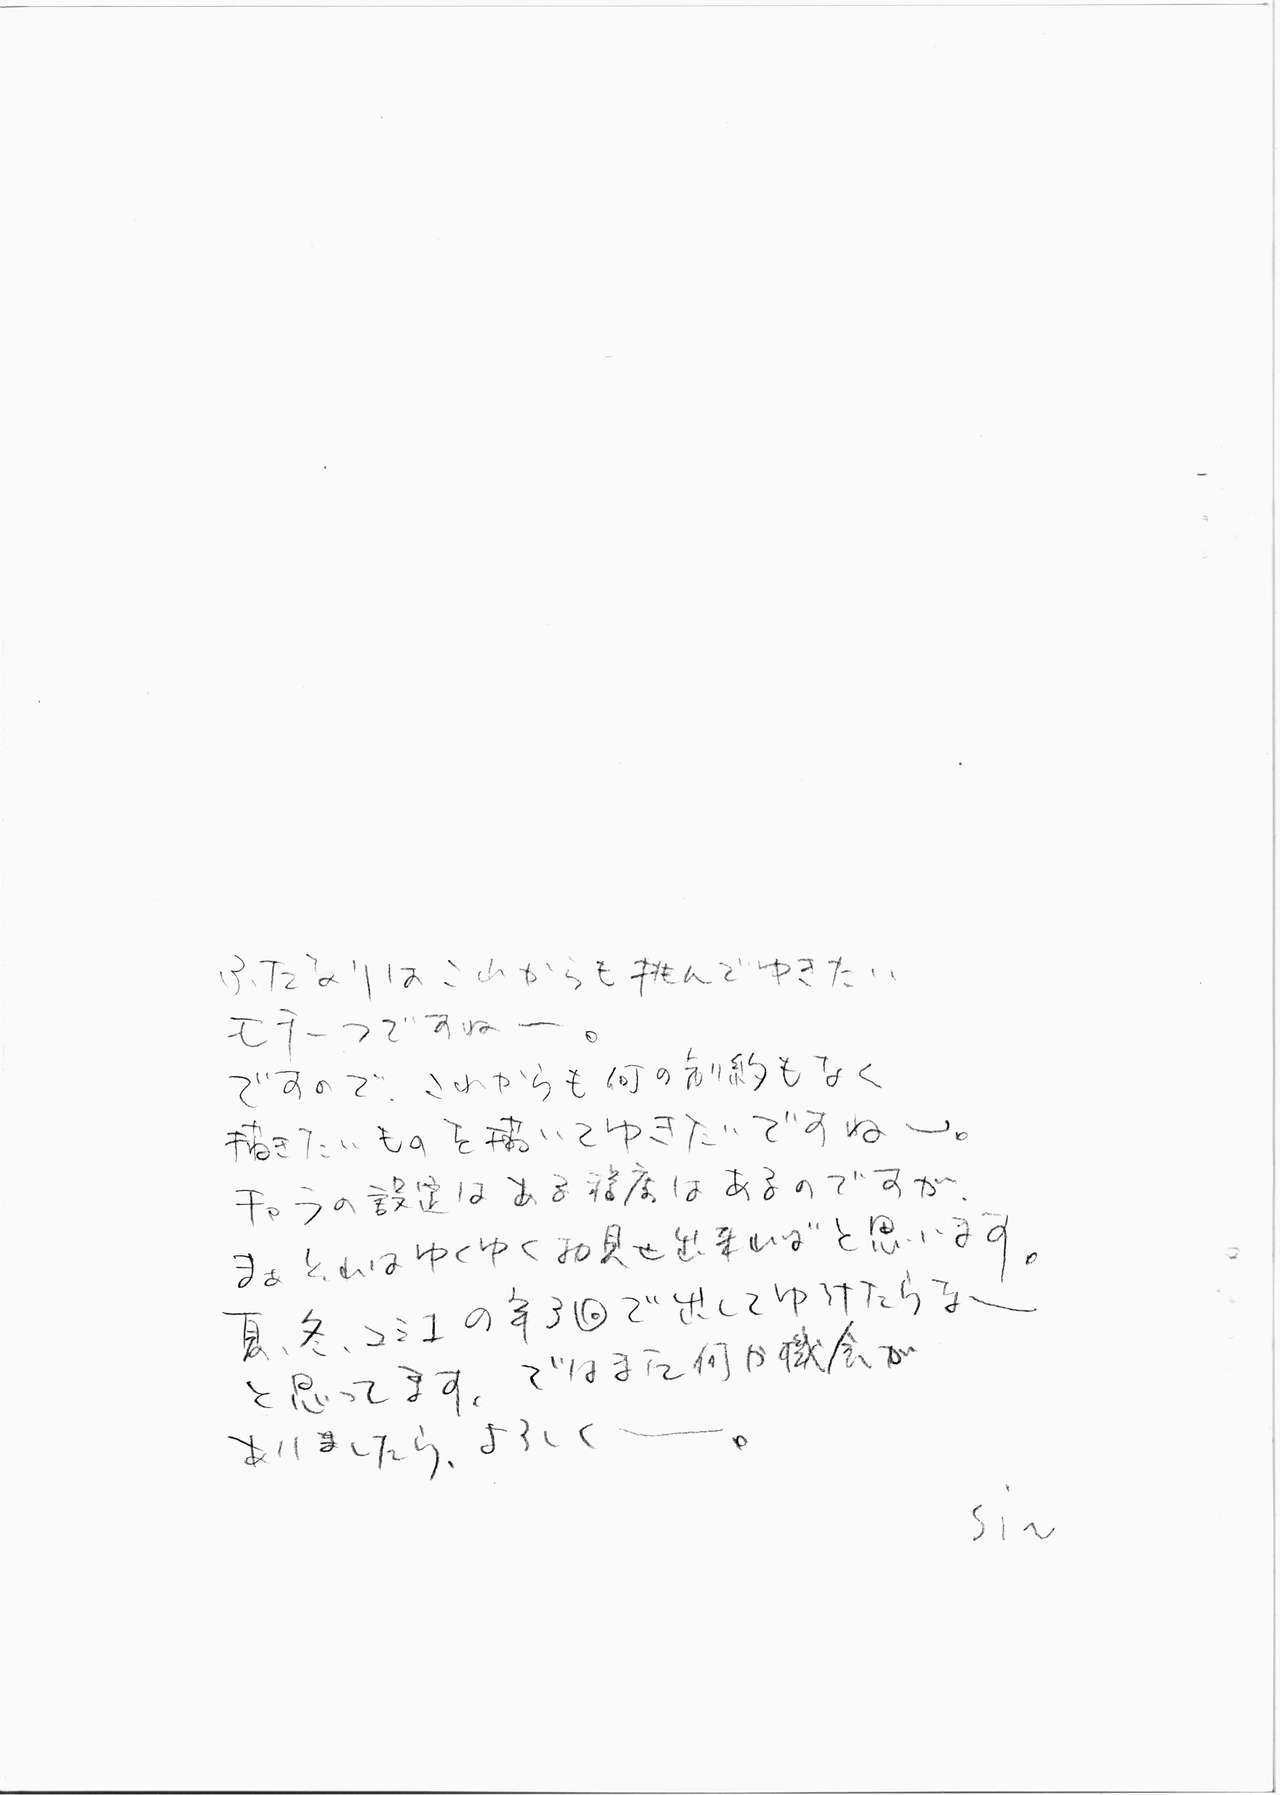 ふたなりはこれからも挑んでゆきたい
モチーフですねー。
ですので、これからも何の制約もなく
描きたいものを描いてゆきたいですねー。
キャラの設定はある程度はあるのですが、
まぁそれはゆくゆくお見せ出来ればと思います。
夏、冬、コミ1の年3回で出してゆけたらなー
と思ってます。ではまた何か機会が
ありましたら、よろしくー。
sin